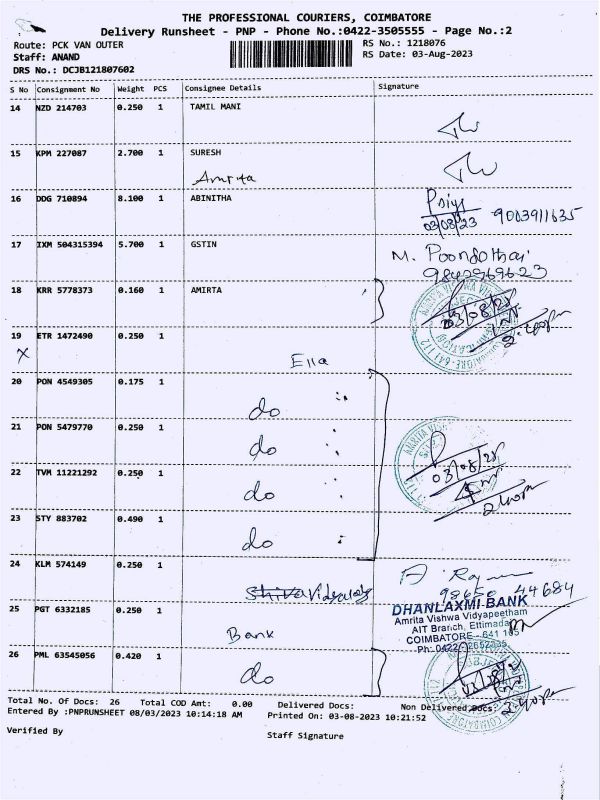 THE PROFESSIONAL COURIERS, COIMBATORE
Delivery Runsheet - PNP - Phone No.:0422-3505555 - Page No.:2
Route: PCK VAN OUTER RS No.: 1218076
Staff: ANAND RS Date: 03-Aug-2023
DRS No.: DCJB121807602
S No Consignment No Weight PCS Consignee Details Signature
14 NZD 214703 0.250 1 TAMIL MANI
15 KPM 227087 2.700 1 SURESH
Amrita
16 DDG 710894 8.100 1 ABINITHA Priya
03/08/23 9003911635
17 IXM 504315394 5.700 1 GSTIN M. Poondothai
9842969623
18 KRR 5778373 0.160 1 AMIRTA
03/08/23
2.40pm
19 ETR 1472490 0.250 1
X Etta
20 PON 4549305 0.175 1
do
21 PON 5479770 0.250 1
do
03/08/23
22 TVM 11221292 0.250 1
do
2.40pm
23 STY 883702 0.490 1
do
24 KLM 574149 0.250 1
98650 44684
25 PGT 6332185 0.250 1 DHANLAXMI BANK
Amrita Vishwa Vidyapeetham
AIT Branch, Ettimadai
Bank COIMBATORE - 641 105
26 PML 63545056 0.420 1
do
2.40pm
Total No. Of Docs: 26 Total COD Amt: 0.00 Delivered Docs: Non Delivered Docs:
Entered By :PNPRUNSHEET 08/03/2023 10:14:18 AM Printed On: 03-08-2023 10:21:52
Verified By Staff Signature